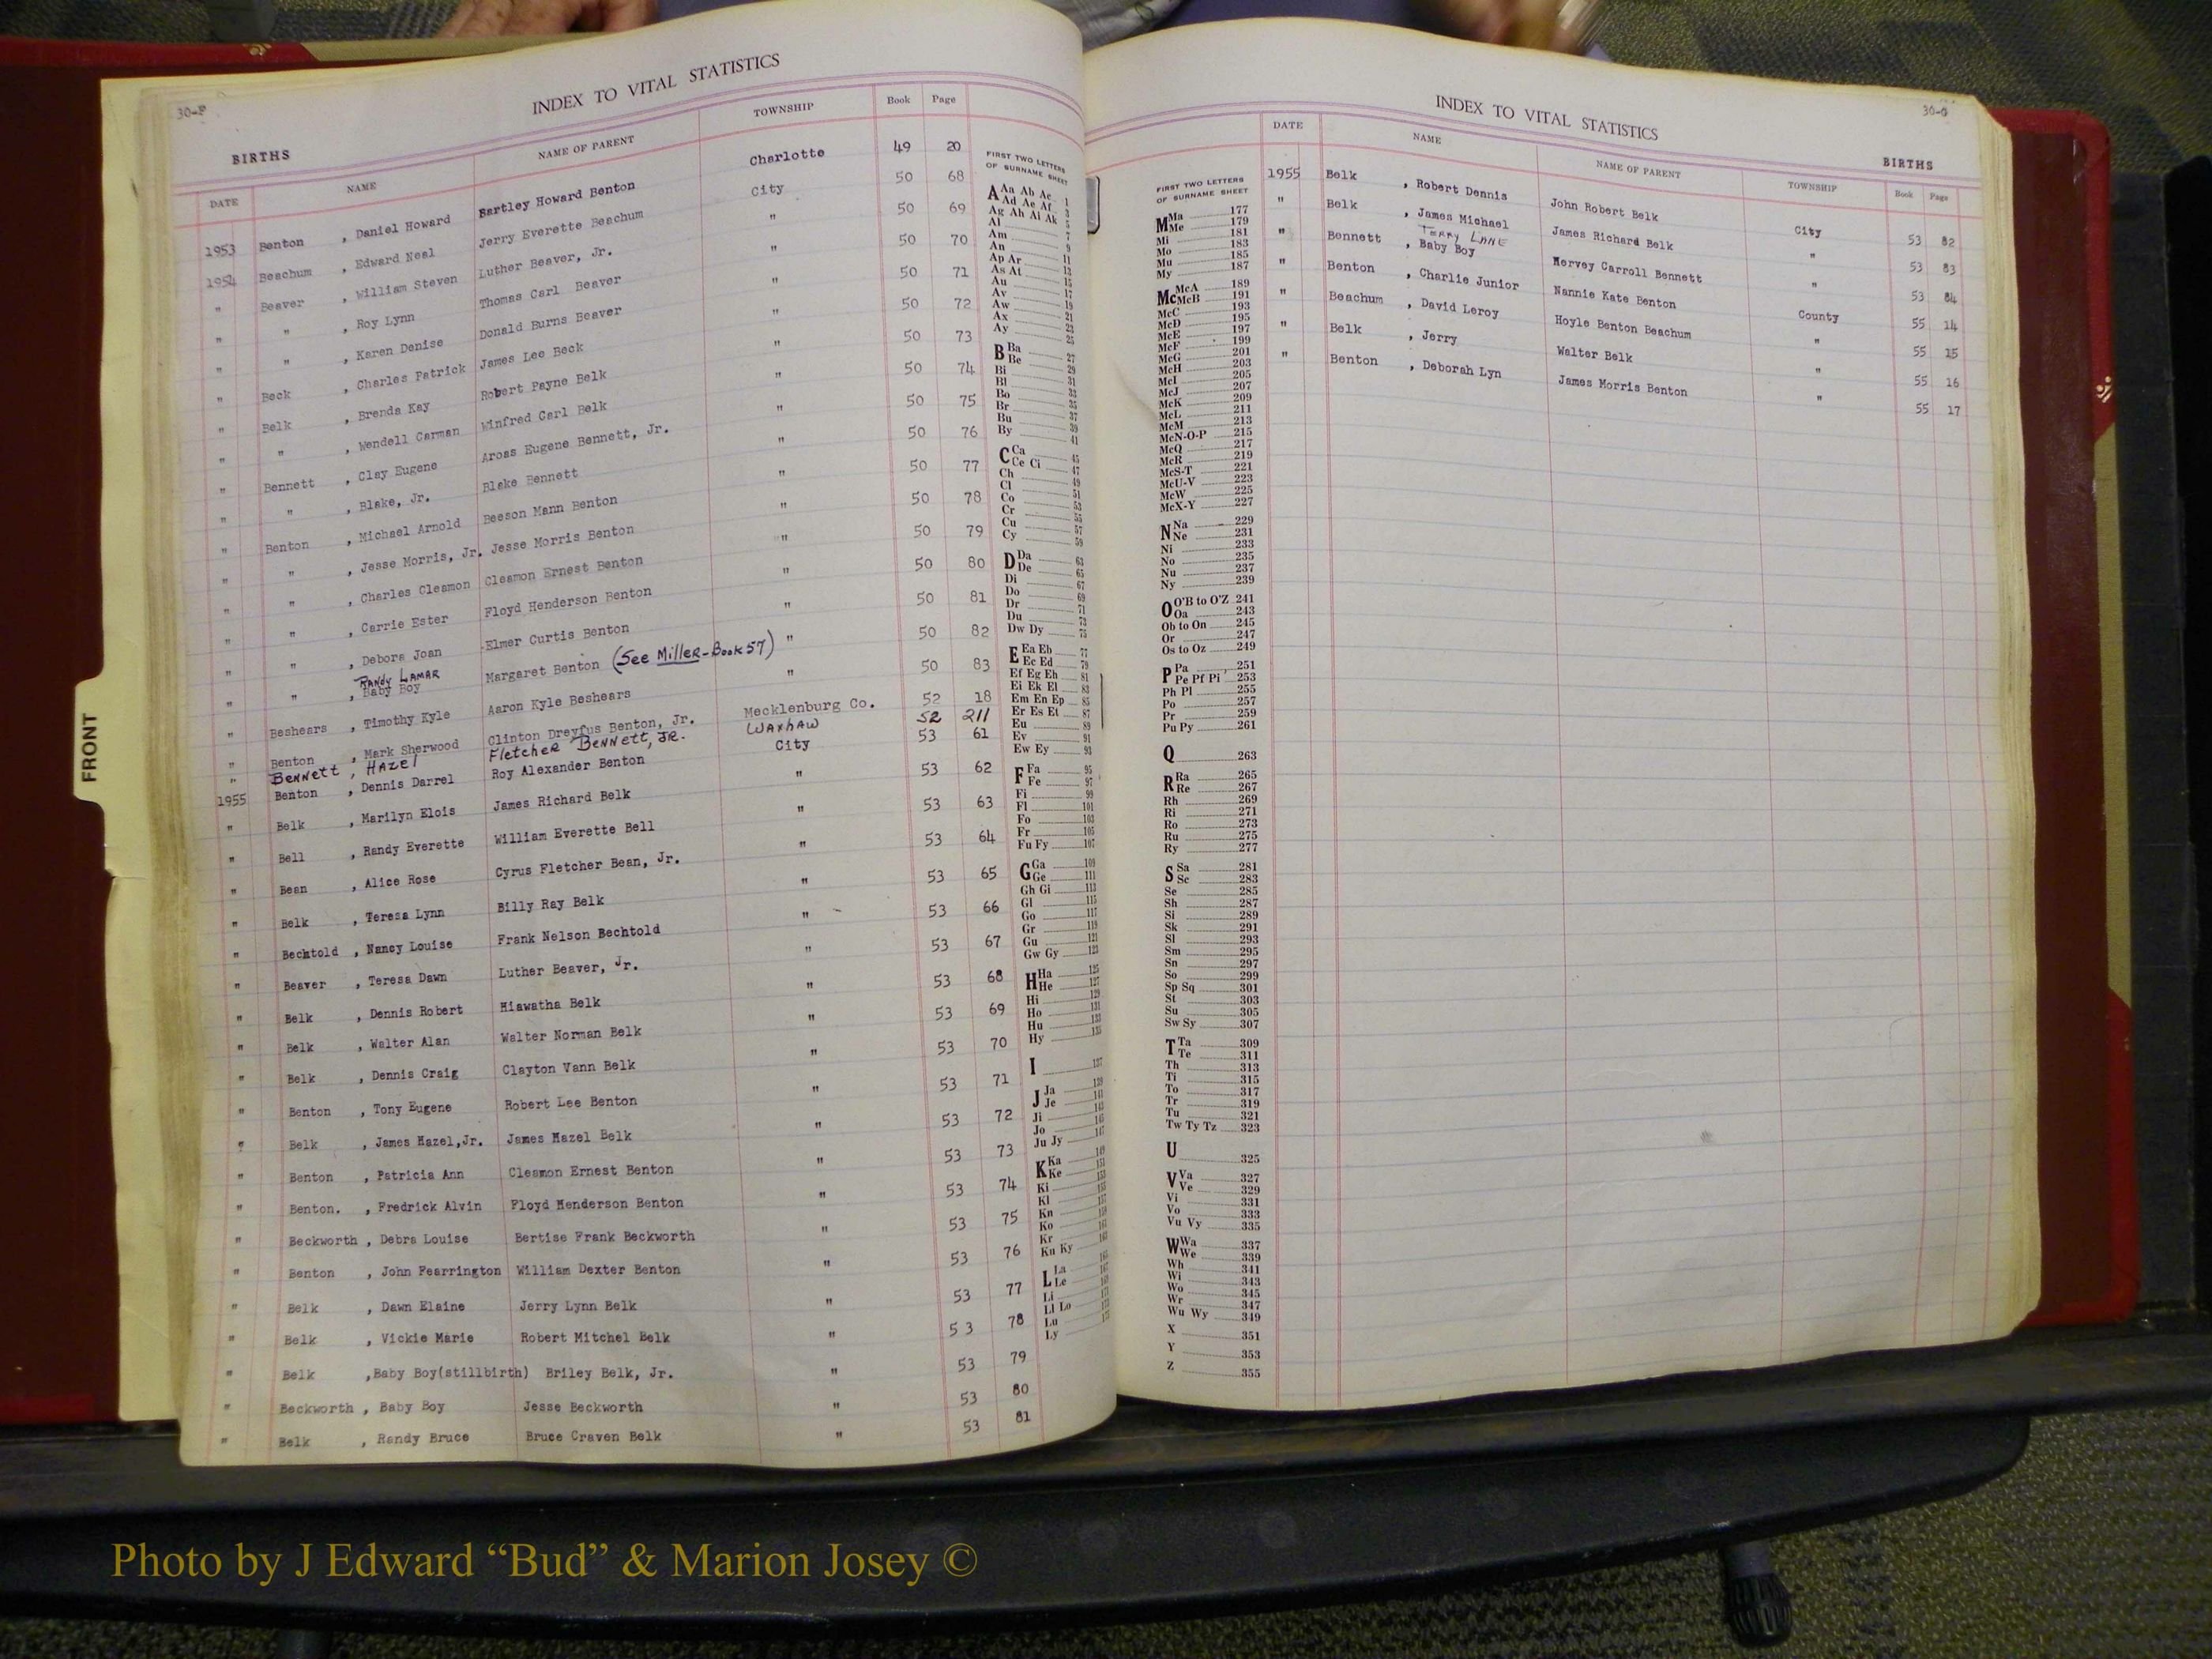 30-P
INDEX TO VITAL STATISTICS
BIRTHS
DATE NAME NAME OF PARENT TOWNSHIP Book Page
1953 Benton , Daniel Howard Bartley Howard Benton Charlotte 49 20
1954 Beachum , Edward Neal Jerry Everette Beachum City 50 68
" Beaver , William Steven Luther Beaver, Jr. " 50 69
" " , Roy Lynn Thomas Carl Beaver " 50 70
" " , Karen Denise Donald Burns Beaver " 50 71
" Beck , Charles Patrick James Lee Beck " 50 72
" Belk , Brenda Kay Robert Payne Belk " 50 73
" " , Wendell Carman Winfred Carl Belk " 50 74
" Bennett , Clay Eugene Aross Eugene Bennett, Jr. " 50 75
" " , Blake, Jr. Blake Bennett " 50 76
" Benton , Michael Arnold Beeson Mann Benton " 50 77
" " , Jesse Morris, Jr. Jesse Morris Benton " 50 78
" " , Charles Cleamon Cleamon Ernest Benton " 50 79
" " , Carrie Ester Floyd Henderson Benton " 50 80
" " , Debora Joan Elmer Curtis Benton " 50 81
RANDY LAMAR
" " , Baby Boy Margaret Benton (See Miller-Book 57) " 50 82
" Beshears , Timothy Kyle Aaron Kyle Beshears " 50 83
" Benton , Mark Sherwood Clinton Dreyfus Benton, Jr. Mecklenburg Co. 52 18
" BENNETT , HAZEL FLETCHER BENNETT, JR. WAXHAW 52 211
1955 Benton , Dennis Darrel Roy Alexander Benton City 53 61
" Belk , Marilyn Elois James Richard Belk " 53 62
" Bell , Randy Everette William Everette Bell " 53 63
" Bean , Alice Rose Cyrus Fletcher Bean, Jr. " 53 64
" Belk , Teresa Lynn Billy Ray Belk " 53 65
" Bechtold , Nancy Louise Frank Nelson Bechtold " 53 66
" Beaver , Teresa Dawn Luther Beaver, Jr. " 53 67
" Belk , Dennis Robert Hiawatha Belk " 53 68
" Belk , Walter Alan Walter Norman Belk " 53 69
" Belk , Dennis Craig Clayton Vann Belk " 53 70
" Benton , Tony Eugene Robert Lee Benton " 53 71
" Belk , James Hazel,Jr. James Hazel Belk " 53 72
" Benton , Patricia Ann Cleamon Ernest Benton " 53 73
" Benton. , Fredrick Alvin Floyd Henderson Benton " 53 74
" Beckworth , Debra Louise Bertise Frank Beckworth " 53 75
" Benton , John Fearrington William Dexter Benton " 53 76
" Belk , Dawn Elaine Jerry Lynn Belk " 53 77
" Belk , Vickie Marie Robert Mitchel Belk " 53 78
" Belk ,Baby Boy(stillbirth) Briley Belk, Jr. " 53 79
" Beckworth , Baby Boy Jesse Beckworth " 53 80
" Belk , Randy Bruce Bruce Craven Belk " 53 81
FIRST TWO LETTERS
OF SURNAME SHEET
A Aa Ab Ac 1
Ad Ae Af 3
Ag Ah Ai Ak 5
Al 7
Am 9
An 11
Ap Ar 13
As At 15
Au 17
Av 19
Aw 21
Ax 23
Ay 25
B Ba 27
Be 29
Bi 31
Bl 33
Bo 35
Br 37
Bu 39
By 41
C Ca 45
Ce Ci 47
Ch 49
Cl 51
Co 53
Cr 55
Cu 57
Cy 59
D Da 63
De 65
Di 67
Do 69
Dr 71
Du 73
Dw Dy 75
E Ea Eb 77
Ec Ed 79
Ef Eg Eh 81
Ei Ek El 83
Em En Ep 85
Er Es Et 87
Eu 89
Ev 91
Ew Ey 93
F Fa 95
Fe 97
Fi 99
Fl 101
Fo 103
Fr 105
Fu Fy 107
G Ga 109
Ge 111
Gh Gi 113
Gl 115
Go 117
Gr 119
Gu 121
Gw Gy 123
H Ha 125
He 127
Hi 129
Ho 131
Hu 133
Hy 135
I 137
J Ja 139
Je 141
Ji 143
Jo 145
Ju Jy 147
K Ka 149
Ke 151
Ki 153
Kl 155
Kn
Ko
Kr
Ku Ky
L La
Le
Li
Ll Lo
Lu
Ly
FRONT
INDEX TO VITAL STATISTICS
30-Q
BIRTHS
DATE NAME NAME OF PARENT TOWNSHIP Book Page
1955 Belk , Robert Dennis John Robert Belk City 53 82
" Belk , James Michael James Richard Belk " 53 83
TERRY LANE
" Bennett , Baby Boy Hervey Carroll Bennett " 53 84
" Benton , Charlie Junior Nannie Kate Benton County 55 14
" Beachum , David Leroy Hoyle Benton Beachum " 55 15
" Belk , Jerry Walter Belk " 55 16
" Benton , Deborah Lyn James Morris Benton " 55 17
FIRST TWO LETTERS
OF SURNAME SHEET
M Ma 177
Me 179
Mi 181
Mo 183
Mu 185
My 187
Mc McA 189
McB 191
McC 193
McD 195
McE 197
McF 199
McG 201
McH 203
McI 205
McJ 207
McK 209
McL 211
McM 213
McN-O-P 215
McQ 217
McR 219
McS-T 221
McU-V 223
McW 225
McX-Y 227
N Na 229
Ne 231
Ni 233
No 235
Nu 237
Ny 239
O O'B to O'Z 241
Oa 243
Ob to On 245
Or 247
Os to Oz 249
P Pa 251
Pe Pf Pi 253
Ph Pl 255
Po 257
Pr 259
Pu Py 261
Q 263
R Ra 265
Re 267
Rh 269
Ri 271
Ro 273
Ru 275
Ry 277
S Sa 281
Sc 283
Se 285
Sh 287
Si 289
Sk 291
Sl 293
Sm 295
Sn 297
So 299
Sp Sq 301
St 303
Su 305
Sw Sy 307
T Ta 309
Te 311
Th 313
Ti 315
To 317
Tr 319
Tu 321
Tw Ty Tz 323
U 325
V Va 327
Ve 329
Vi 331
Vo 333
Vu Vy 335
W Wa 337
We 339
Wh 341
Wi 343
Wo 345
Wr 347
Wu Wy 349
X 351
Y 353
Z 355
Photo by J Edward “Bud” & Marion Josey ©